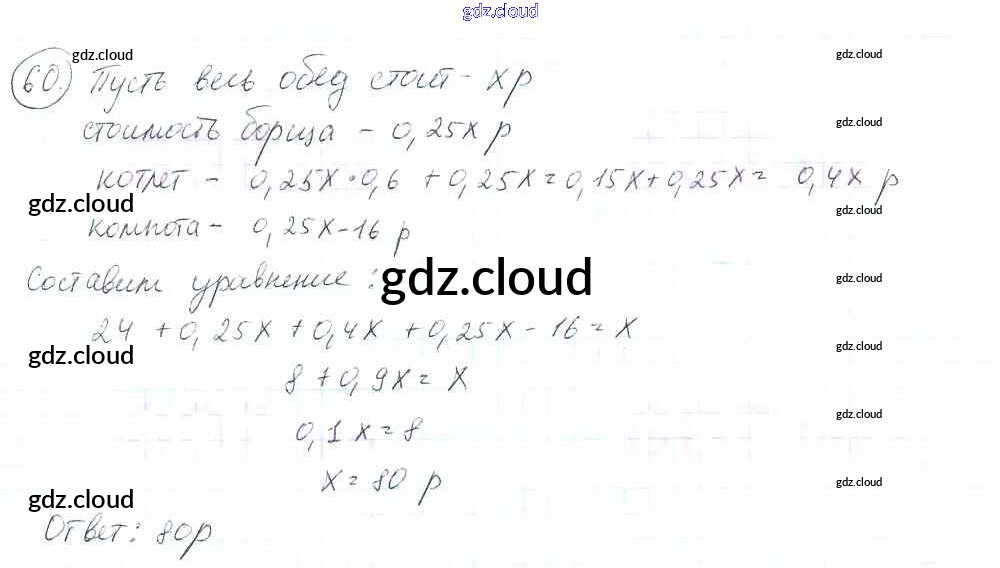 gdz.cloud
gdz.cloud gdz.cloud
60. Пусть весь обед стоит - x р
gdz.cloud
стоимость борща - 0,25x р
котлет - 0,25x · 0,6 + 0,25x = 0,15x + 0,25x = 0,4x р
gdz.cloud gdz.cloud
компота - 0,25x - 16 р
Составим уравнение:
gdz.cloud gdz.cloud
24 + 0,25x + 0,4x + 0,25x - 16 = x
gdz.cloud gdz.cloud
8 + 0,9x = x
gdz.cloud
0,1x = 8
x = 80 р
gdz.cloud gdz.cloud
Ответ: 80р